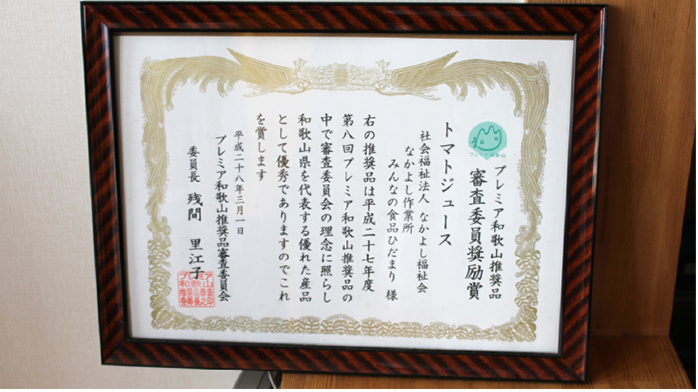 プレミア和歌山推奨品
審査委員奨励賞
トマトジュース
社会福祉法人 なかよし福祉会
なかよし作業所
みんなの食品ひだまり 様
右の推奨品は平成二十七年度
第八回プレミア和歌山推奨品の
中で審査委員会の理念に照らし
和歌山県を代表する優れた産品
として優秀でありますのでこれ
を賞します
平成二十八年三月一日
プレミア和歌山推奨品審査委員会
委員長 残間 里江子